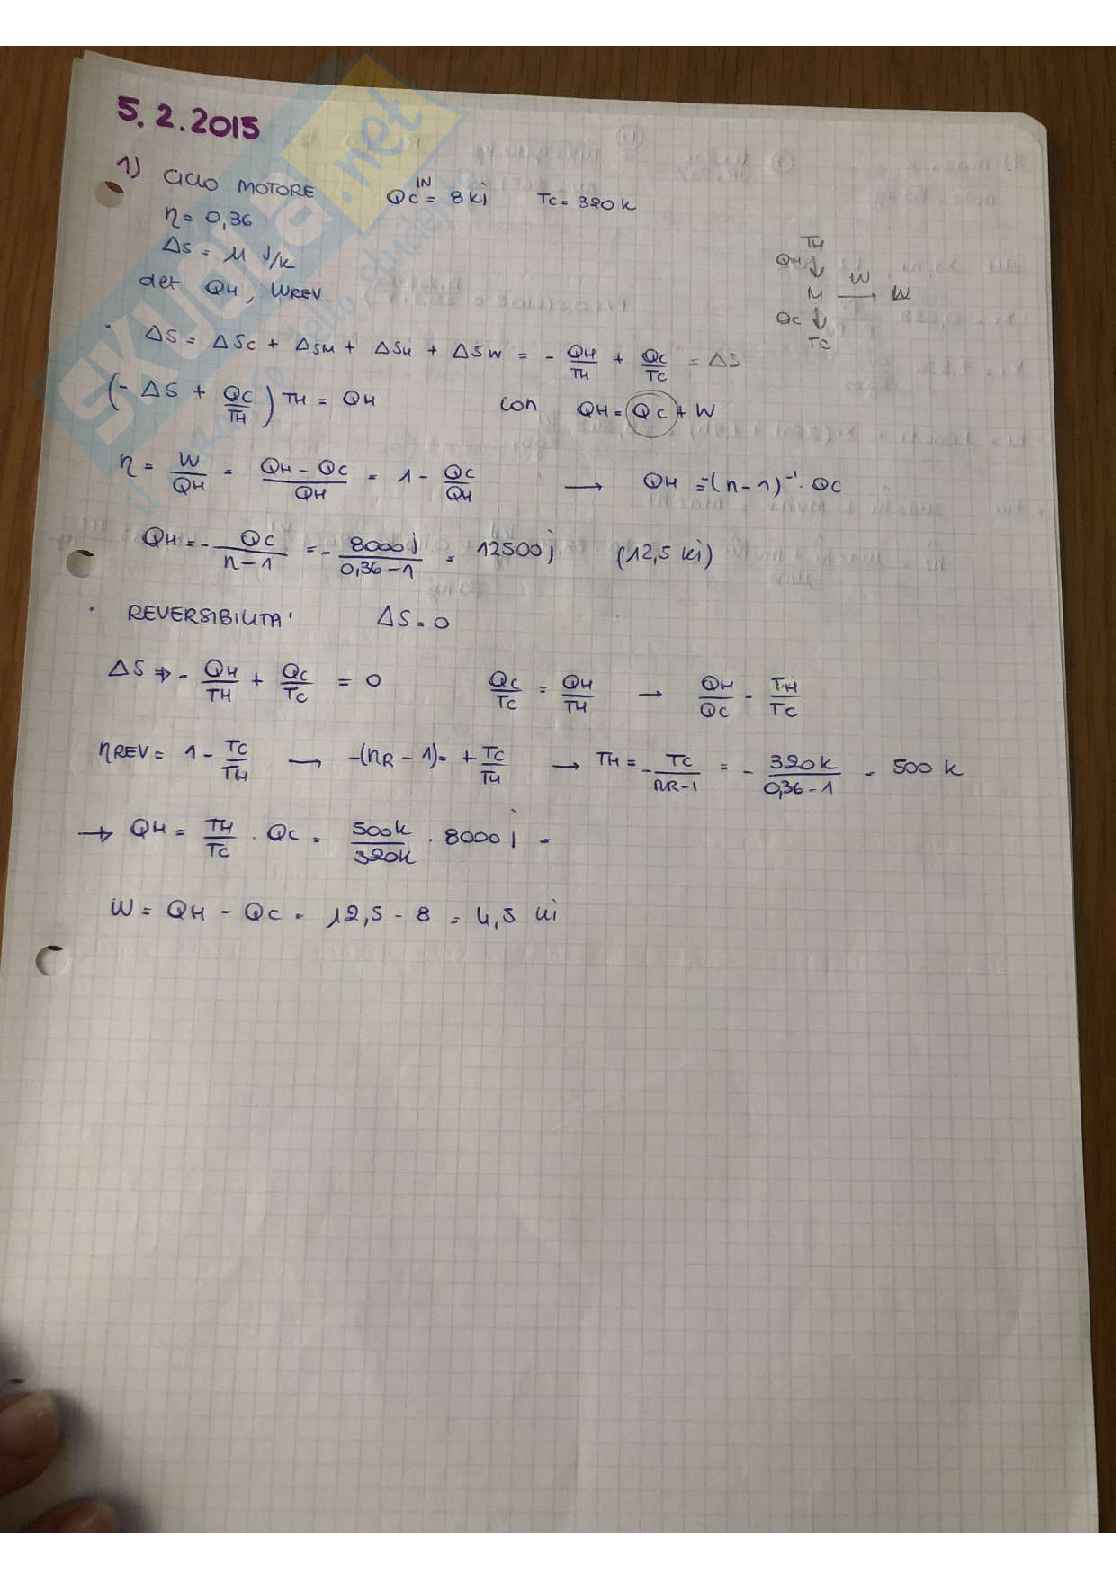 5.2.2015
1) CICLO MOTORE QC^IN = 8 kj TC = 320 K
η = 0,36
ΔS = 11 J/K
det QH, WREV
TH
QH ↓ W
M → W
QC ↓
TC
· ΔS = ΔSC + ΔSM + ΔSH + ΔSW = - QH/TH + QC/TC = ΔS
(- ΔS + QC/TH) TH = QH con QH = QC + W
η = W/QH = QH - QC/QH = 1 - QC/QH → QH = -(η-1)^-1 · QC
QH = - QC/η-1 = - 8000 j/0,36-1 = 12500 j (12,5 kj)
· REVERSIBILITA' ΔS = 0
ΔS ⇒ - QH/TH + QC/TC = 0 QC/TC = QH/TH → QH/QC = TH/TC
ηREV = 1 - TC/TH → -(ηR - 1) = + TC/TH → TH = - TC/ηR-1 = - 320 K/0,36-1 = 500 K
→ QH = TH/TC · QC = 500K/320K · 8000 j =
W = QH - QC = 12,5 - 8 = 4,5 kj
SKUOLA.net